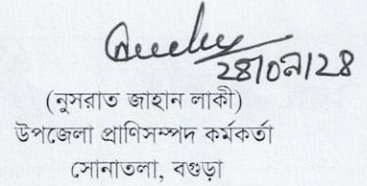 ২৪/০৯/২৪
(নুসরাত জাহান লাকী)
উপজেলা প্রাণিসম্পদ কর্মকর্তা
সোনাতলা, বগুড়া